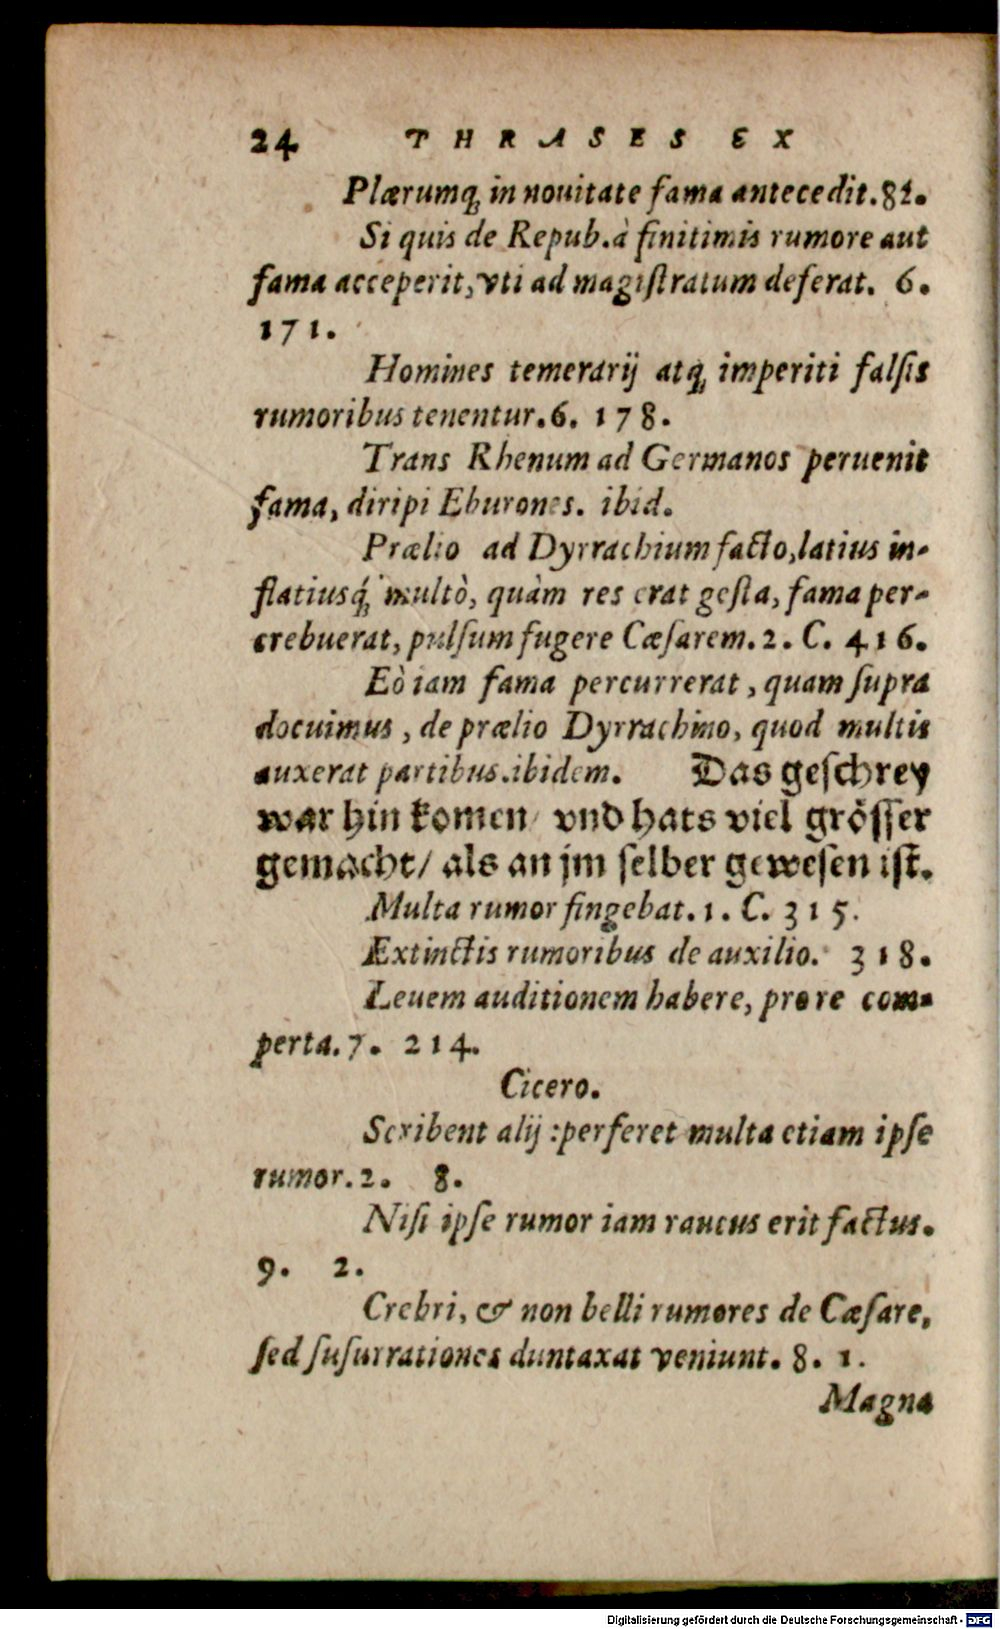 24 THRASES EX
Plærumq́; in nouitate fama antecedit. 82.
Si quis de Repub. à finitimis rumore aut
fama acceperit, vti ad magiſtratum deferat. 6.
171.
Homines temerarij atq́; imperiti falſis
rumoribus tenentur. 6. 178.
Trans Rhenum ad Germanos peruenit
fama, diripi Eburones. ibid.
Prælio ad Dyrrachium facto, latius in-
flatiusq́; multò, quàm res erat geſta, fama per-
crebuerat, pulſum fugere Cæſarem. 2. C. 416.
Eò iam fama percurrerat, quam ſupra
docuimus, de prælio Dyrrachino, quod multis
auxerat partibus. ibidem. Das geſchrey
war hin komen/ vnd hats viel gröſſer
gemacht/ als an jm ſelber geweſen iſt.
Multa rumor fingebat. 1. C. 315.
Extinctis rumoribus de auxilio. 318.
Leuem auditionem habere, pro re com-
perta. 7. 214.
Cicero.
Scribent alij: perferet multa etiam ipſe
rumor. 2. 8.
Niſi ipſe rumor iam raucus erit factus.
9. 2.
Crebri, & non belli rumores de Cæſare,
ſed ſuſurrationes duntaxat veniunt. 8. 1.
Magna
Digitalisierung gefördert durch die Deutsche Forschungsgemeinschaft - DFG